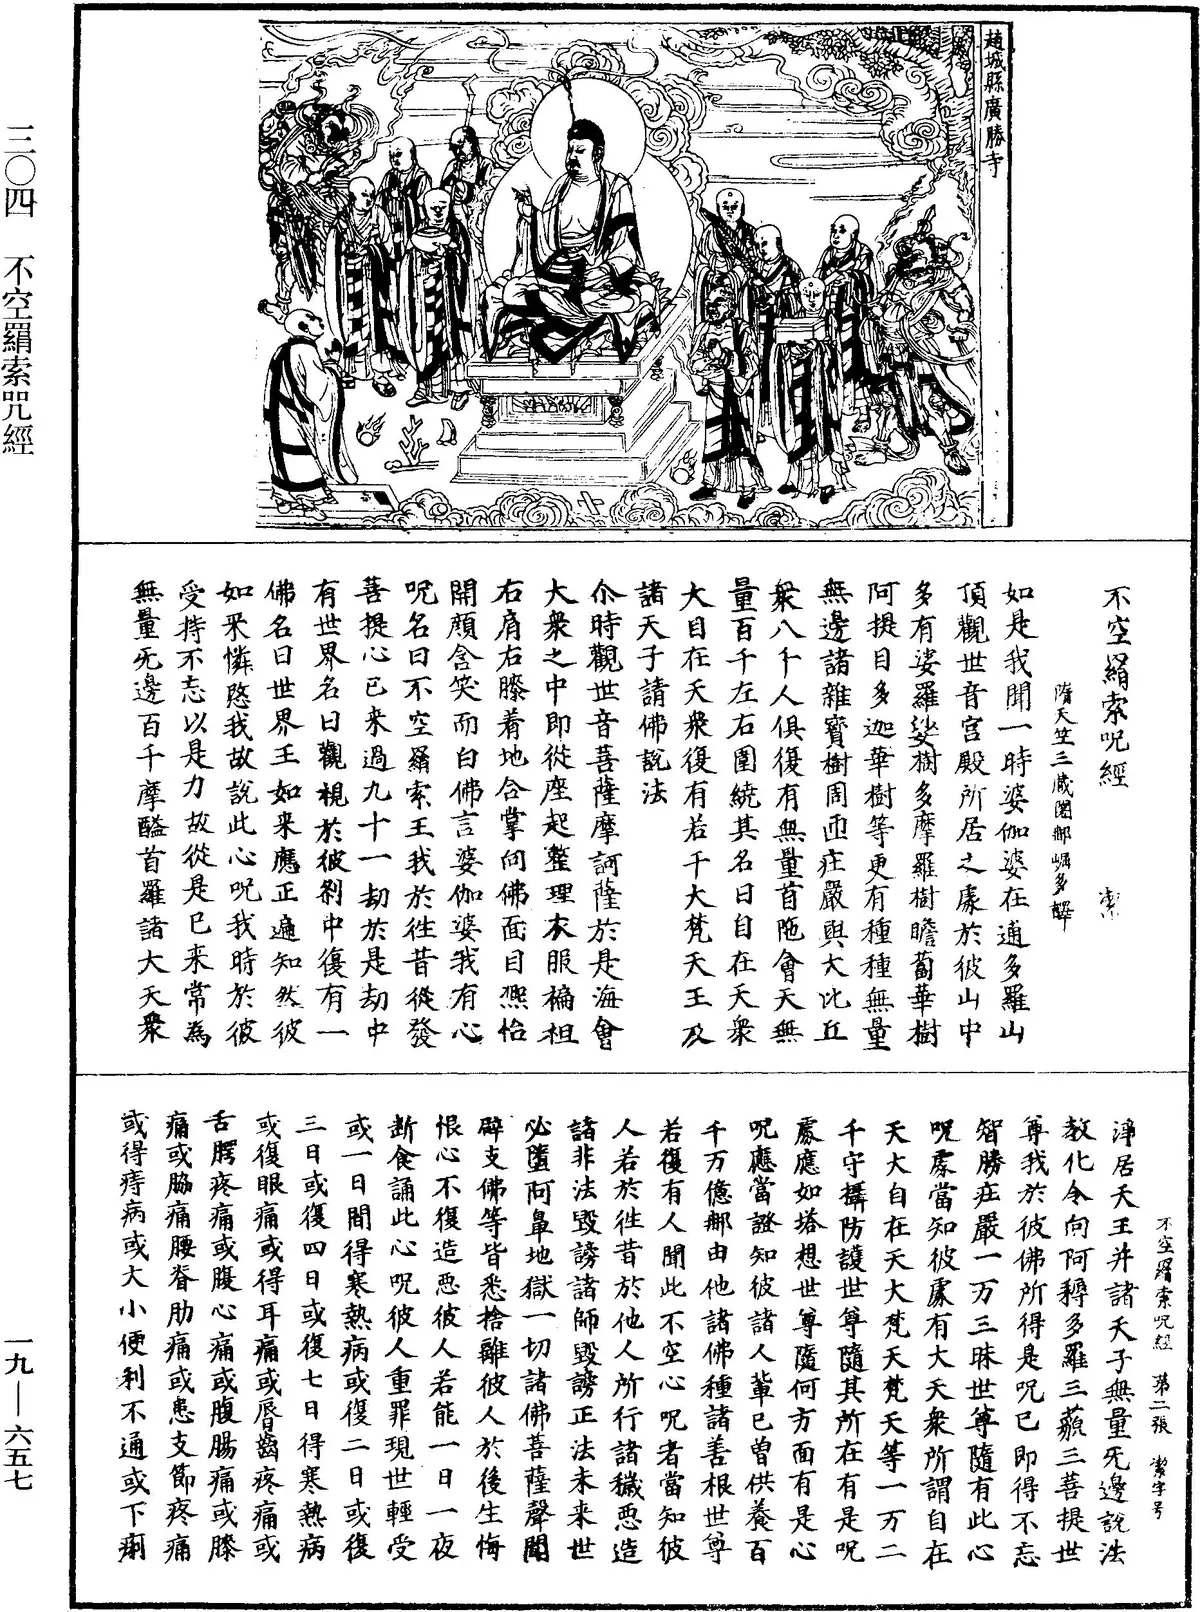 趙城縣廣勝寺
三〇四　不空羂索咒經
不空羂索呪經　潔
隋天竺三藏闍那崛多譯
如是我聞一時婆伽婆在逋多羅山
頂觀世音宮殿所居之處於彼山中
多有娑羅娑樹多摩羅樹瞻蔔華樹
阿提目多迦華樹等更有種種無量
無邊諸雜寶樹周帀庄嚴與大比丘
衆八千人俱復有無量首陁會天無
量百千左右圍繞其名曰自在天衆
大自在天衆復有若干大梵天王及
諸天子請佛說法
尒時觀世音菩薩摩訶薩於是海會
大衆之中即從座起整理衣服褊袒
右肩右膝着地合掌向佛面目熈怡
開顔含笑而白佛言婆伽婆我有心
呪名曰不空羂索王我於徃昔從發
菩提心已来過九十一劫於是劫中
有世界名曰觀視於彼刹中復有一
佛名曰世界王如来應正遍知然彼
如来憐愍我故說此心呪我時於彼
受持不忘以是力故從是已来常為
無量无邊百千摩醯首羅諸大天衆
不空羂索呪經　第二張　潔字号
淨居天王并諸天子無量无邊說法
教化令向阿耨多羅三藐三菩提世
尊我於彼佛所得是呪已即得不忘
智勝庄嚴一万三昧世尊隨有此心
呪處當知彼處有大天衆所謂自在
天大自在天大梵天梵天等一万二
千守攝防護世尊隨其所在有是呪
處應如塔想世尊隨何方面有是心
呪應當證知彼諸人輩已曾供養百
千万億那由他諸佛種諸善根世尊
若復有人聞此不空心呪者當知彼
人若於徃昔於他人所行諸穢惡造
諸非法毀謗諸師毀謗正法未来世
必墮阿鼻地獄一切諸佛菩薩聲聞
辟支佛等皆悉捨離彼人於後生悔
恨心不復造惡彼人若能一日一夜
断食誦此心呪彼人重罪現世輕受
或一日間得寒熱病或復二日或復
三日或復四日或復七日得寒熱病
或復眼痛或得耳痛或脣齒疼痛或
舌腭疼痛或腹心痛或腹腸痛或膝
痛或脇痛腰脊肋痛或患支節疼痛
或得痔病或大小便利不通或下痢
一九—六五七